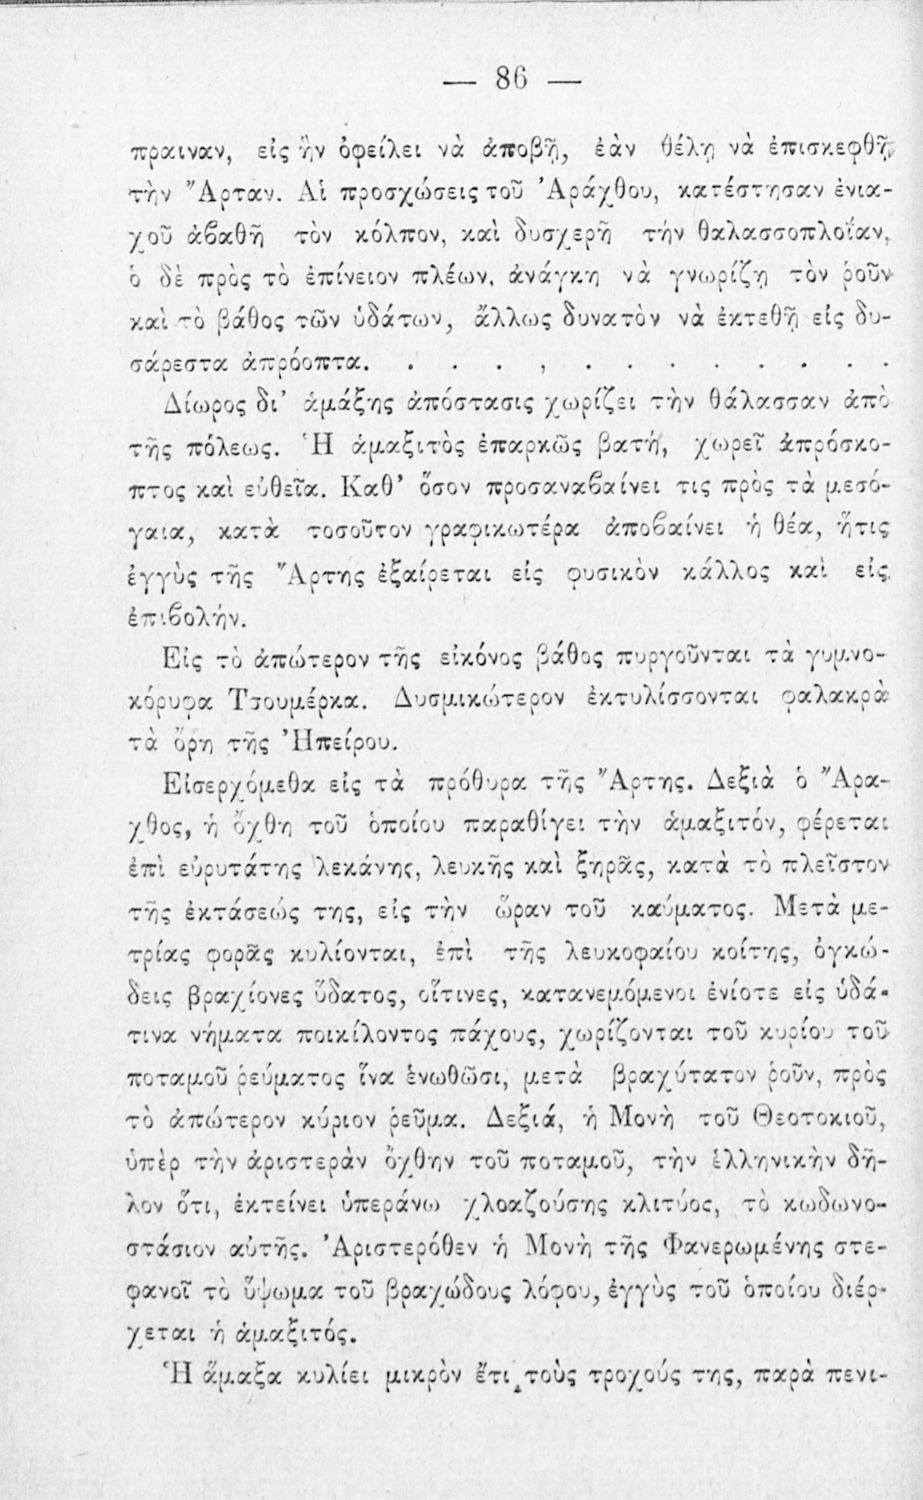 — 86 —
πραιναν, εἰς ἣν ὀφείλει νὰ ἀποβῇ, ἐὰν θέλῃ νὰ ἐπισκεφθῇ,
τὴν Ἄρταν. Αἱ προσχώσεις τοῦ Ἀράχθου, κατέστησαν ἐνια-
χοῦ ἀβαθῆ τὸν κόλπον, καὶ δυσχερῆ τήν θαλασσοπλοΐαν,
ὁ δὲ πρὸς τὸ ἐπίνειον πλέων, ἀνάγκη νὰ γνωρίζῃ τὸν ῥοῦν
καὶ τὸ βάθος τῶν ὑδάτων, ἄλλως δυνατὸν νὰ ἐκτεθῇ εἰς δυ-
σάρεστα ἀπρόοπτα. . . . , . . . . . . . .
Δίωρος δι’ ἁμάξης ἀπόστασις χωρίζει τὴν θάλασσαν ἀπὸ
τῆς πόλεως. Ἡ ἁμαξιτὸς ἐπαρκῶς βατή, χωρεῖ ἀπρόσκο-
πτος καὶ εὐθεῖα. Καθ’ ὅσον προσαναβαίνει τις πρὸς τὰ μεσό-
γαια, κατὰ τοσοῦτον γραφικωτέρα ἀποβαίνει ἡ θέα, ἥτις
ἐγγὺς τῆς Ἄρτης ἐξαίρεται εἰς φυσικὸν κάλλος καὶ εἰς
ἐπιβολήν.
Εἰς τὸ ἀπώτερον τῆς εἰκόνος βάθος πυργοῦνται τὰ γυμνο-
κόρυφα Τζουμέρκα. Δυσμικώτερον ἐκτυλίσσονται φαλακρὰ
τὰ ὄρη τῆς Ἠπείρου.
Εἰσερχόμεθα εἰς τὰ πρόθυρα τῆς Ἄρτης. Δεξιὰ ὁ Ἄρα-
χθος, ἡ ὄχθη τοῦ ὁποίου παραθίγει τὴν ἁμαξιτόν, φέρεται
ἐπὶ εὐρυτάτης λεκάνης, λευκῆς καὶ ξηρᾶς, κατὰ τὸ πλεῖστον
τῆς ἐκτάσεώς της, εἰς τὴν ὥραν τοῦ καύματος. Μετὰ με-
τρίας φορᾶς κυλίονται, ἐπὶ τῆς λευκοφαίου κοίτης, ὀγκώ-
δεις βραχίονες ὕδατος, οἵτινες, κατανεμόμενοι ἐνίοτε εἰς ὑδά-
τινα νήματα ποικίλοντος πάχους, χωρίζονται τοῦ κυρίου τοῦ
ποταμοῦ ῥεύματος ἵνα ἑνωθῶσι, μετὰ βραχύτατον ῥοῦν, πρὸς
τὸ ἀπώτερον κύριον ῥεῦμα. Δεξιά, ἡ Μονὴ τοῦ Θεοτοκιοῦ,
ὑπὲρ τὴν ἀριστερὰν ὄχθην τοῦ ποταμοῦ, τὴν ἑλληνικὴν δῆ-
λον ὅτι, ἐκτείνει ὑπεράνω χλοαζούσης κλιτύος, τὸ κωδωνο-
στάσιον αὐτῆς. Ἀριστερόθεν ἡ Μονὴ τῆς Φανερωμένης στε-
φανοῖ τὸ ὕψωμα τοῦ βραχώδους λόφου, ἐγγὺς τοῦ ὁποίου διέρ-
χεται ἡ ἁμαξιτός.
Ἡ ἅμαξα κυλίει μικρὸν ἔτι τοὺς τροχούς της, παρὰ πενι-